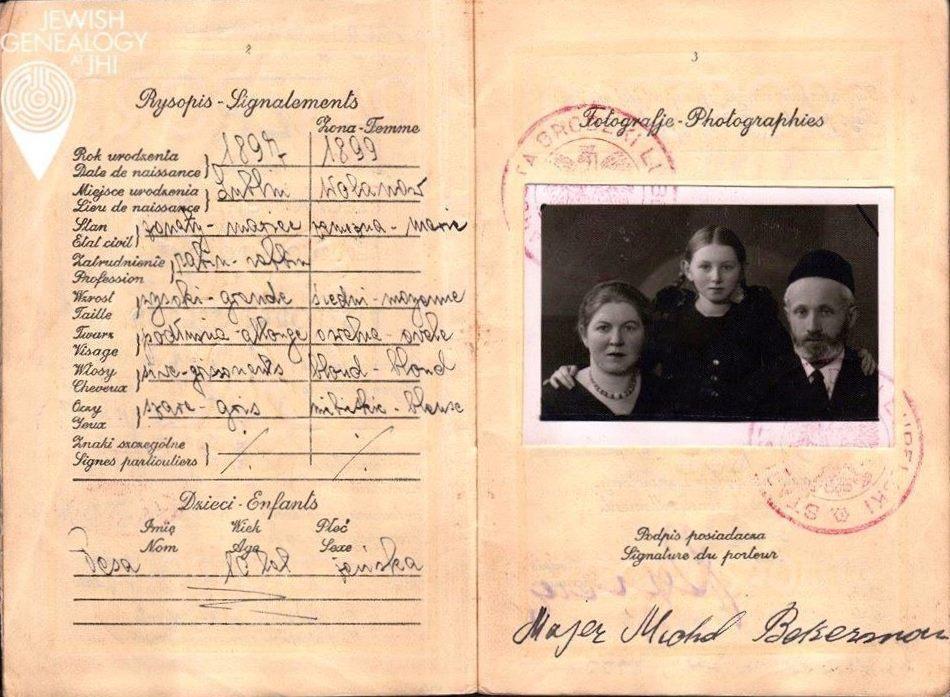 JEWISH
GENEALOGY
AT JHI
2
Rysopis - Signalements
Żona - Femme
Rok urodzenia
Date de naissance
1897 1899
Miejsce urodzenia
Lieu de naissance
Lublin Wolanów
Stan
Etat civil
żonaty - mariée zamężna - mariée
Zatrudnienie
Profession
rabin - rabbin
Wzrost
Taille
wysoki - grande średni - moyenne
Twarz
Visage
podłużna - allonge owalna - ovale
Włosy
Cheveux
siwe - grisonnants blond - blond
Oczy
Yeux
szare - gris niebieskie -
Znaki szczególne
Signes particuliers
Dzieci - Enfants
Imię Wiek Płeć
Nom Age Sexe
Pesa lat żeńska
3
Fotografje - Photographies
GRODZKI
Podpis posiadacza
Signature du porteur
Majer Michel Bekerman